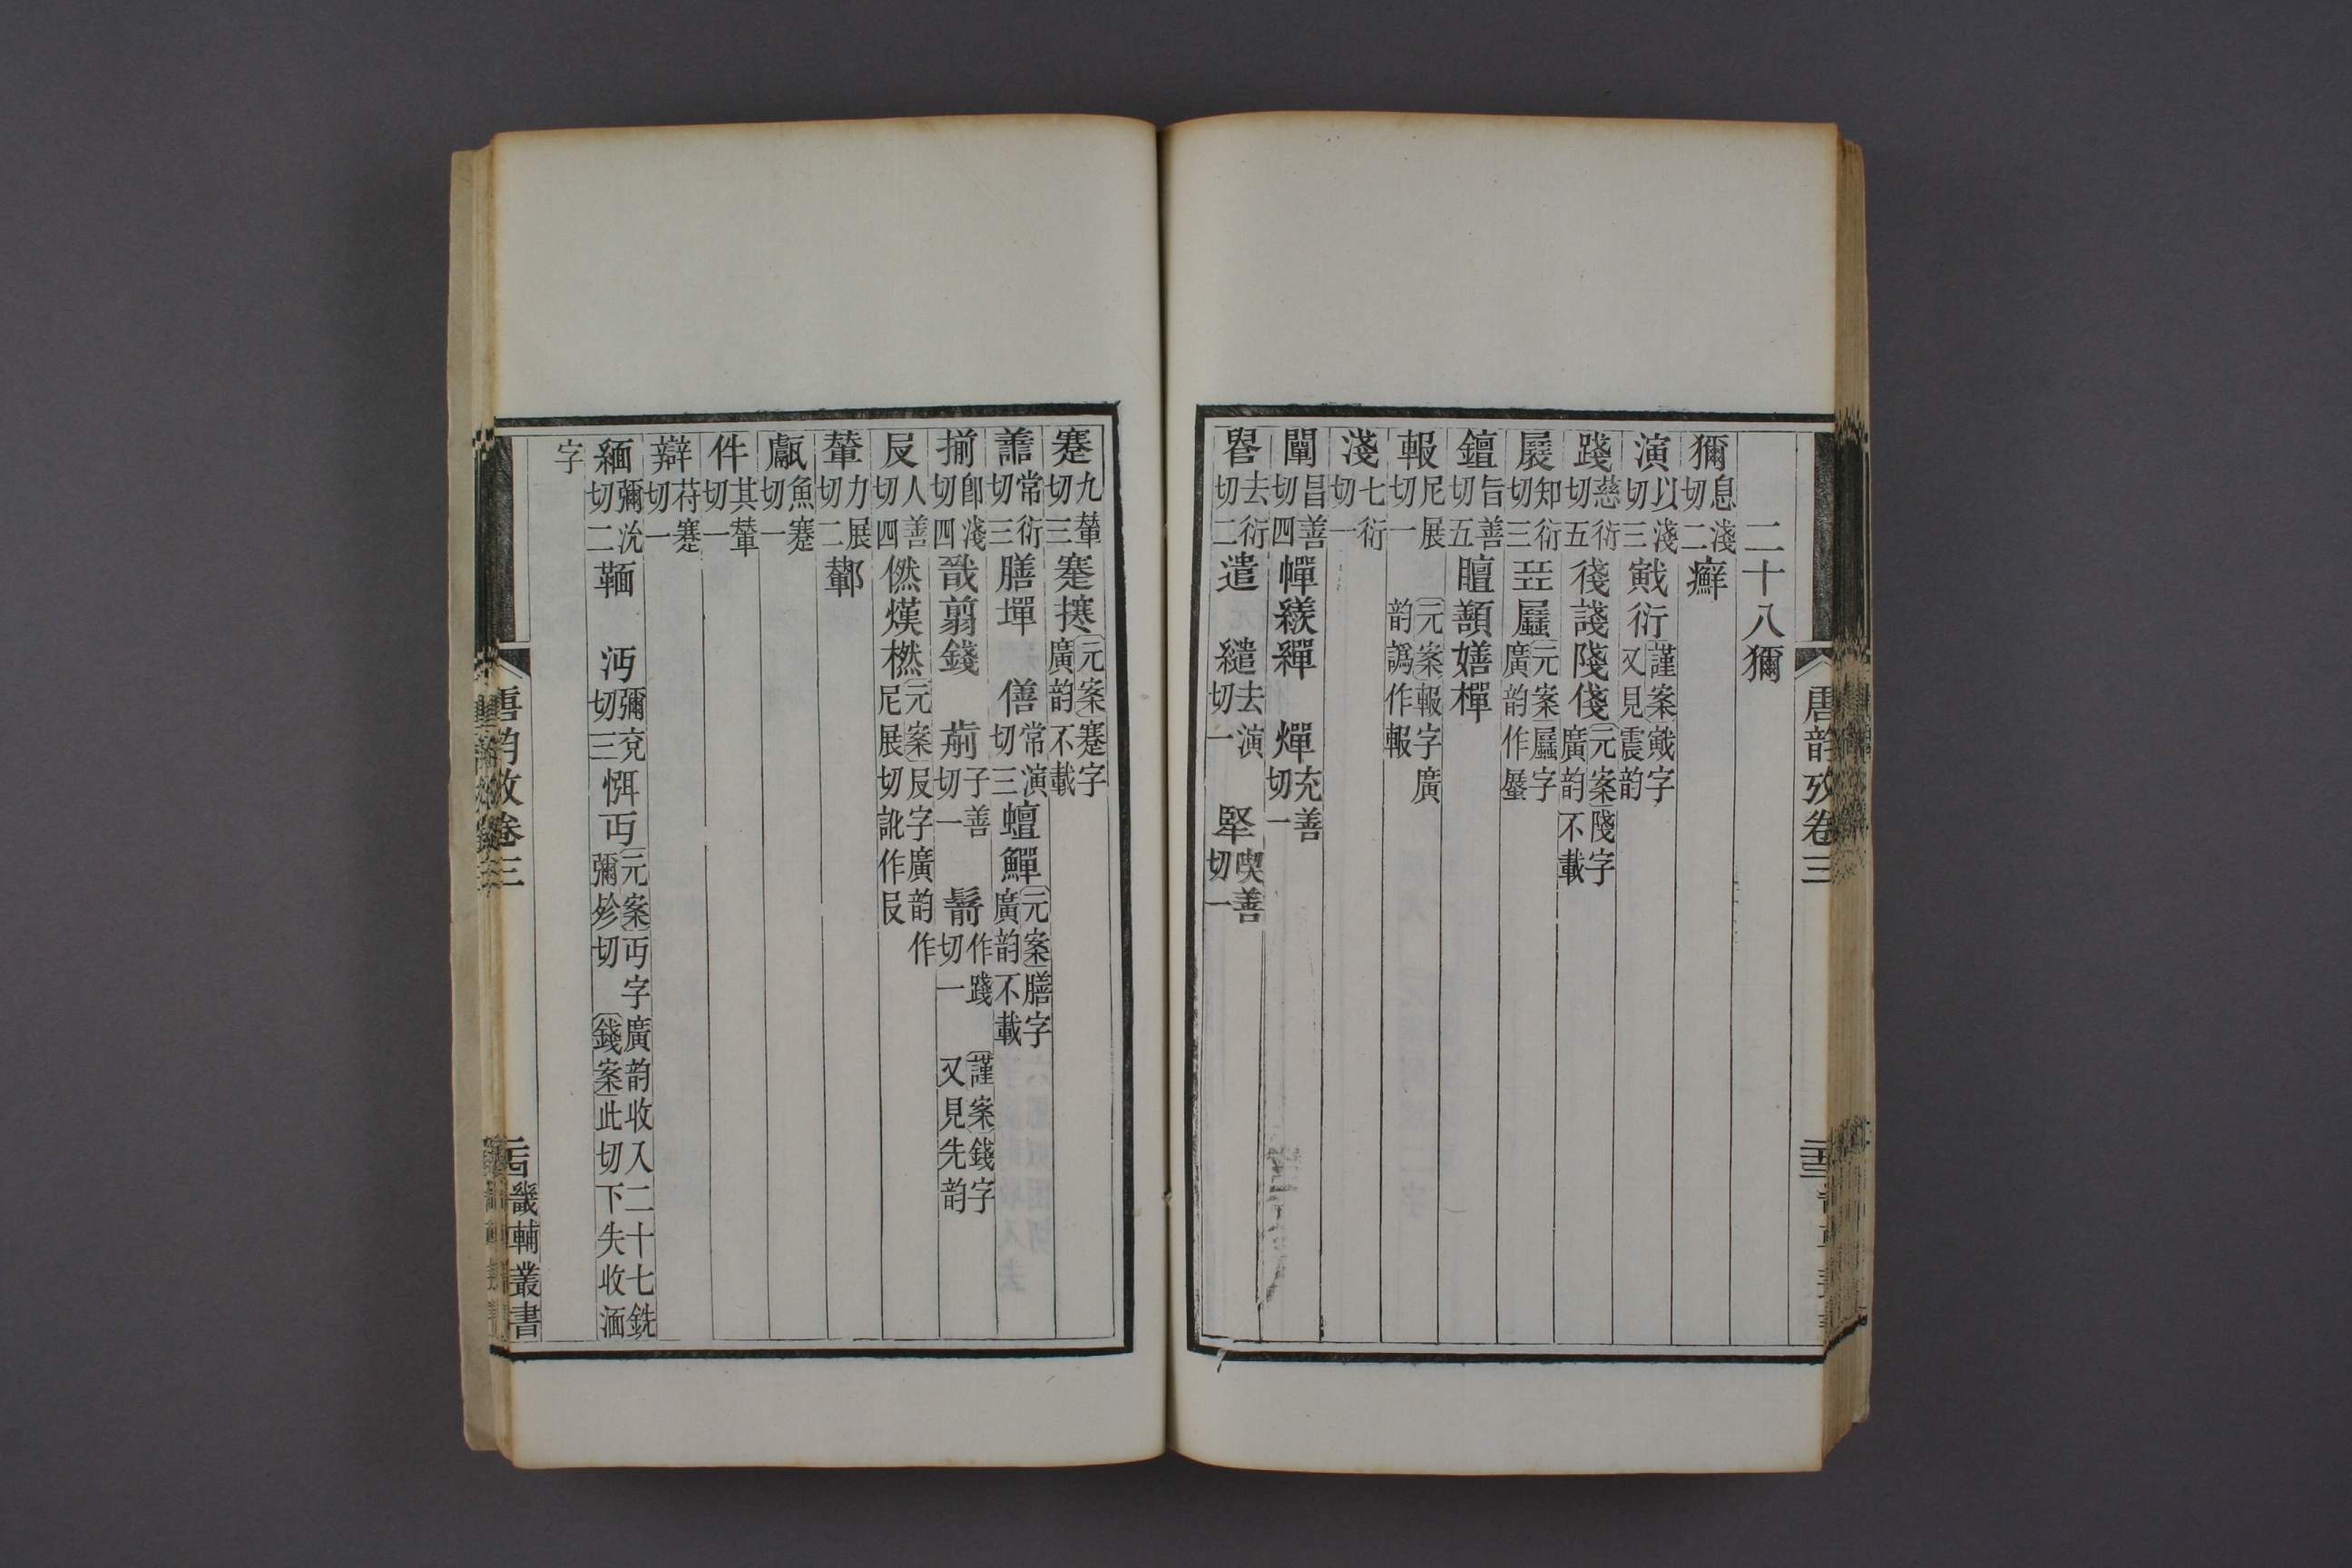 唐韵攷卷三
二十八獮
獮息淺切二癬
演以淺切三戭衍謹案戭字又見震韵
踐慈衍切五衜諓隇俴元案隇字廣韵不載
展知衍切三㠭𡳐元案𡳐字廣韵作蹍
鱣旨善切五䁴顫嫸樿
報尼展切一 元案報字廣韵譌作報
淺七衍切一
闡昌善切四幝繟 燀充善切一
𠳋去衍切二遣 繾去演切一 堅喫善切一
蹇九輦切三蹇攐元案蹇字廣韵不載
譱常衍切三膳墠 僐常演切三蟺鱓元案膳字廣韵不載
揃卽淺切四戩翦錢 葥子善切一 鬋作踐切一 謹案錢字又見先韵
㞋人善切四㒄熯橪元案㞋字廣韵作尼展切訛作㞋
輦力展切二鄻
甗魚蹇切一
件其輦切一
辯苻蹇切一
緬彌沇切二鞔 沔彌兗切三愐丏元案丏字廣韵收入二十七銑彌殄切 錢案此切下失收湎
字
唐韵攷卷三
畿輔叢書